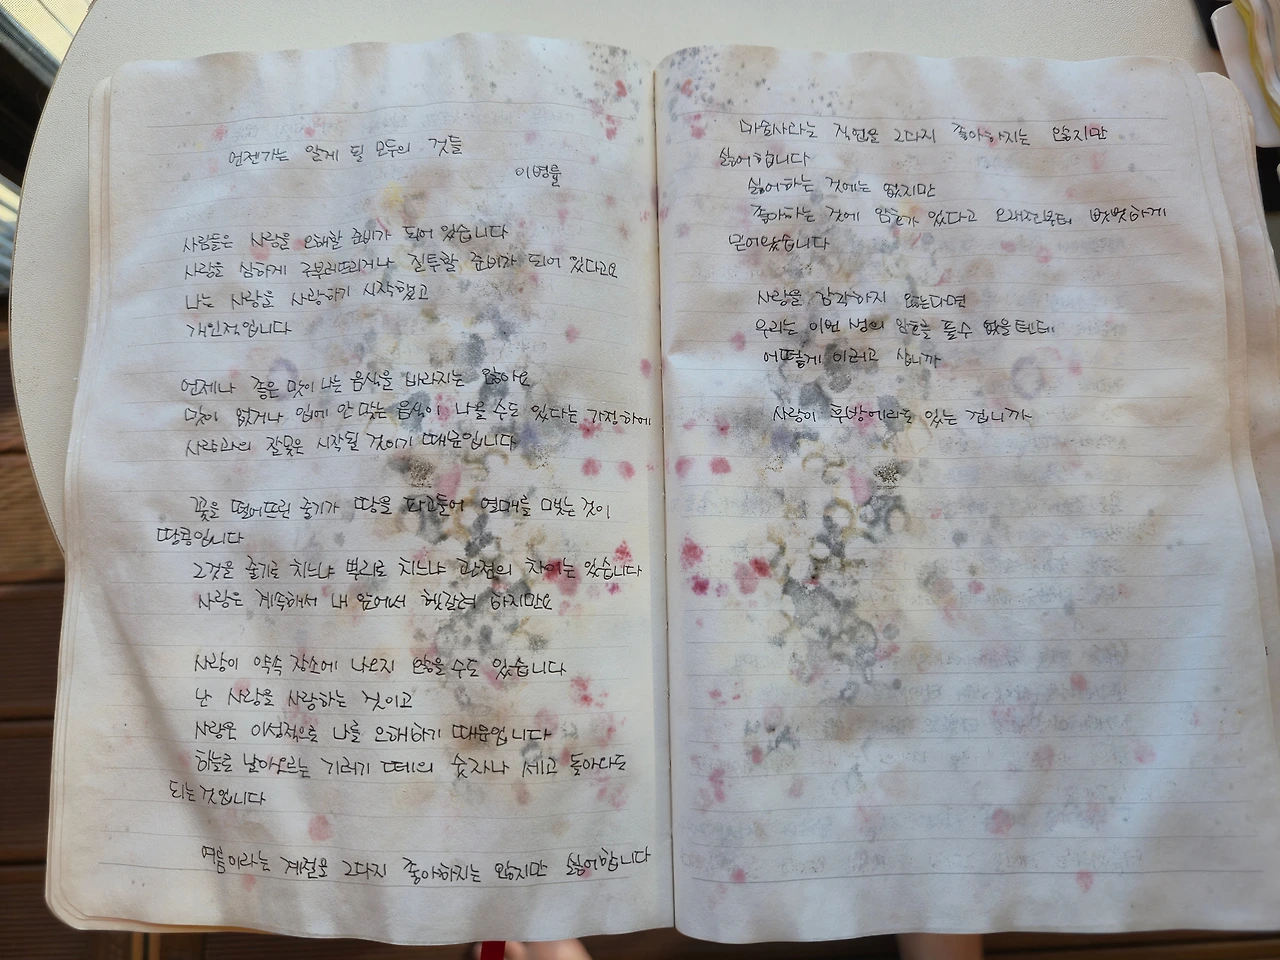 언젠가는 알게 될 모두의 것들
이병률
사람들은 사랑을 오해할 준비가 되어 있습니다
사랑을 심하게 구부러뜨리거나 질투할 준비가 되어 있다고요
나는 사랑을 사랑하기 시작했고
개인적입니다
언제나 좋은 맛이 나는 음식을 바라지는 않아요
맛이 없거나 입에 안 맞는 음식이 나올 수도 있다는 가정하에
사랑과의 잘못은 시작될 것이기 때문입니다
꽃을 떨어뜨린 줄기가 땅을 파고들어 열매를 맺는 것이
땅콩입니다
그것을 줄기로 치느냐 뿌리로 치느냐 관점의 차이는 있습니다
사랑은 계속해서 내 앞에서 헷갈려 하지만요
사랑이 약속 장소에 나오지 않을 수도 있습니다
난 사랑을 사랑하는 것이고
사랑은 이성적으로 나를 오해하기 때문입니다
하늘로 날아오르는 기러기 떼의 숫자나 세고 돌아와도
되는 것입니다
여름이라는 계절을 그다지 좋아하지는 않지만 싫어합니다
마술사라는 직업을 그다지 좋아하지는 않지만
싫어합니다
싫어하는 것에는 없지만
좋아하는 것에 암호가 있다고 오래전부터 뻣뻣하게
믿어왔습니다
사랑을 감각하지 않는다면
우리는 이번 생의 암호를 풀 수 없을 텐데
어떻게 이러고 삽니까
사랑이 후방에라도 있는 겁니까